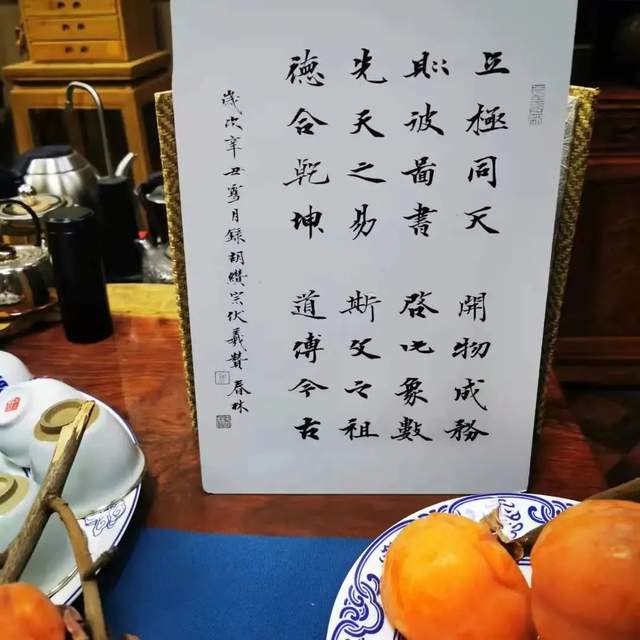 立極同天 開物成務
則彼圖書 啓此象數
先天之易 斯文之祖
德合乾坤 道傳今古
歲次辛丑雪月録胡纘宗伏羲贊 春林